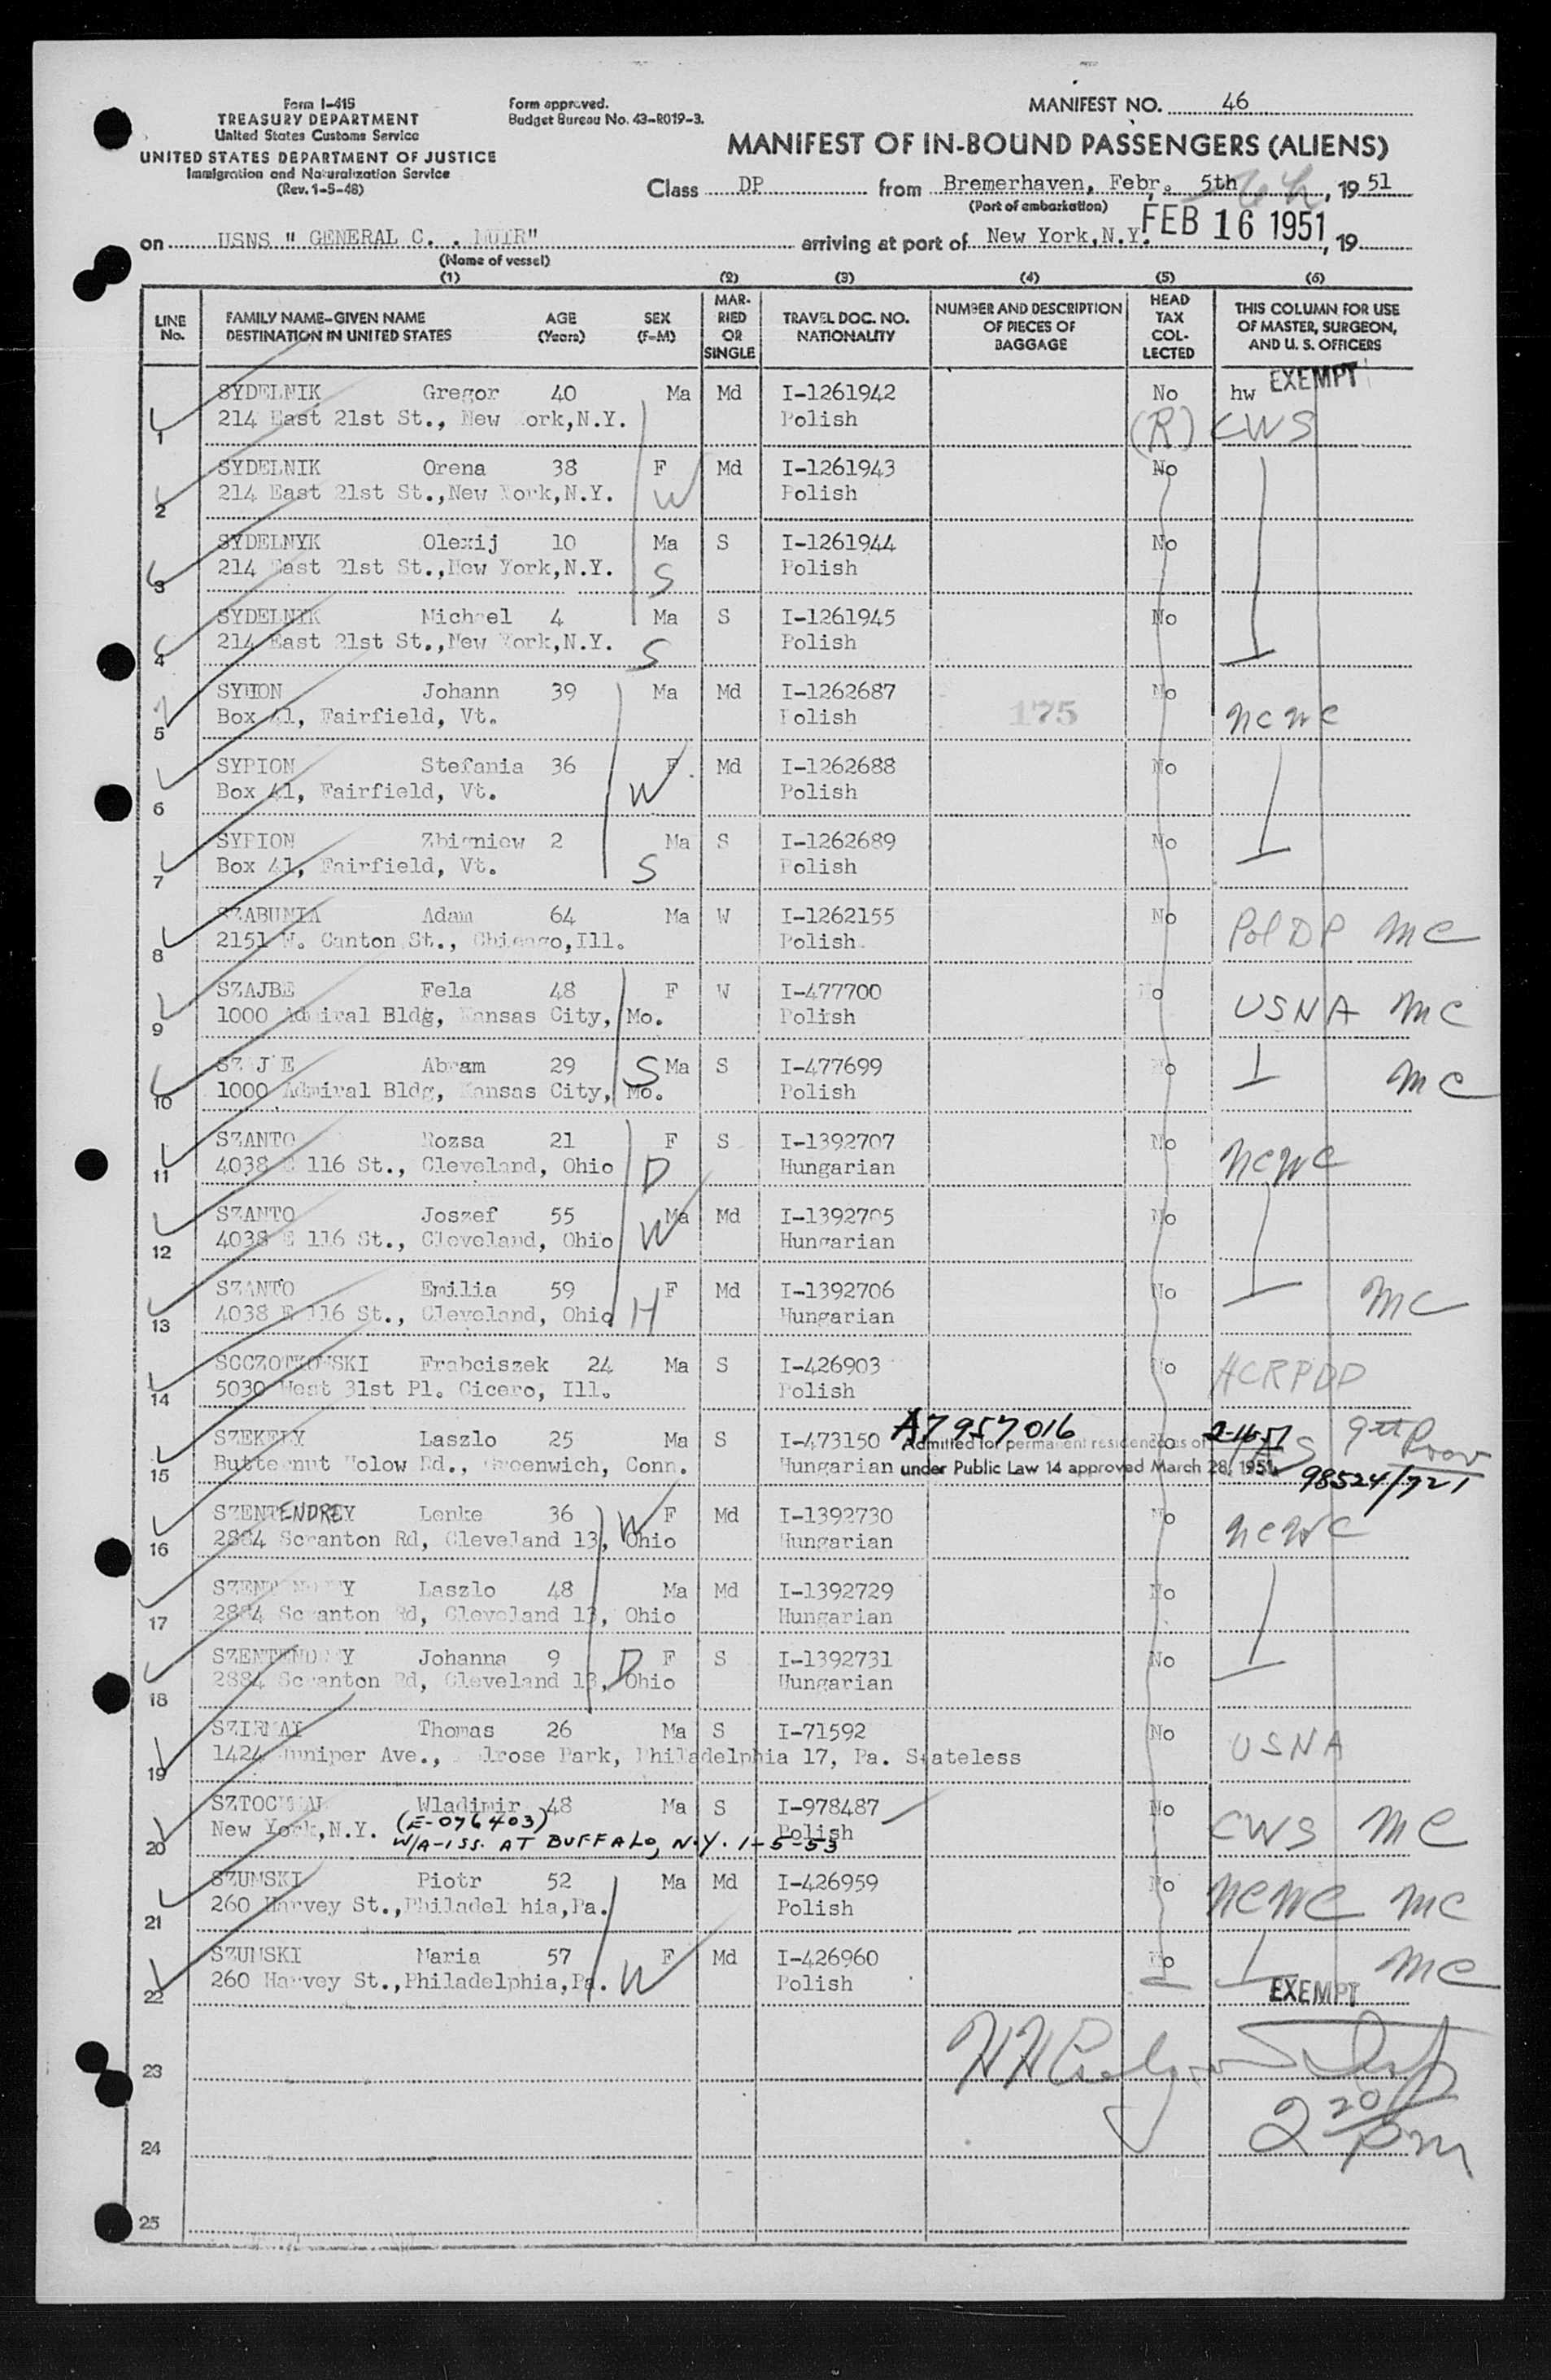 Form I-415
TREASURY DEPARTMENT
United States Customs Service
UNITED STATES DEPARTMENT OF JUSTICE
Immigration and Naturalization Service
(Rev. 1-5-48)
Form approved.
Budget Bureau No. 43-R019-3.
MANIFEST NO. 46
MANIFEST OF IN-BOUND PASSENGERS (ALIENS)
Class DP from Bremerhaven, Febr. 5th, 1951
(Port of embarkation)
on USNS " GENERAL C. . MUIR" arriving at port of New York,N.Y. FEB 16 1951, 19
(Name of vessel)
(1) (2) (3) (4) (5) (6)
LINE No. FAMILY NAME-GIVEN NAME DESTINATION IN UNITED STATES AGE (Years) SEX (F-M) MARRIED OR SINGLE TRAVEL DOC. NO. NATIONALITY NUMBER AND DESCRIPTION OF PIECES OF BAGGAGE HEAD TAX COLLECTED THIS COLUMN FOR USE OF MASTER, SURGEON, AND U. S. OFFICERS
SYDELNIK Gregor 40 Ma Md I-1261942 No hw EXEMPT
1 214 East 21st St., New ork,N.Y. Polish (R) CWS
SYDELNIK Orena 38 F Md I-1261943 No
2 214 East 21st St.,New York,N.Y. W Polish
SYDELNYK Olexij 10 Ma S I-1261944 No
3 214 East 21st St.,New York,N.Y. S Polish
SYDELNIK Michael 4 Ma S I-1261945 No
4 214 East 21st St.,New York,N.Y. S Polish
Johann 39 Ma Md I-1262687 No
5 Box 41, Fairfield, Vt. Polish 175 NCWC
SYPION Stefania 36 F Md I-1262688 No
6 Box 41, Fairfield, Vt. W Polish
SYPION Zbigniew 2 Ma S I-1262689 No
7 Box 41, Fairfield, Vt. S Polish
SZABUNIA Adam 64 Ma W I-1262155 No
8 2151 W. Canton St., Chicago,Ill. Polish Pol DP MC
SZAJBE Fela 48 F W I-477700 No
9 1000 Admiral Bldg, Kansas City, Mo. Polish USNA MC
Abram 29 S Ma S I-477699 No
10 1000 Admiral Bldg, Kansas City, Mo. Polish MC
SZANTO Rozsa 21 F S I-1392707 No
11 4038 E 116 St., Cleveland, Ohio D Hungarian NCWC
SZANTO Joszef 55 Ma Md I-1392705 No
12 4038 E 116 St., Cleveland, Ohio W Hungarian
SZANTO Emilia 59 F Md I-1392706 No
13 4038 E 116 St., Cleveland, Ohio H Hungarian MC
SCCZOTKOWSKI Frabciszek 24 Ma S I-426903 No
14 5030 West 31st Pl. Cicero, Ill. Polish
SZEKELY Laszlo 25 Ma S I-473150 A7957016 No
Admitted for permanent residence as of 2-16-51
15 Butternut Holow Rd., Greenwich, Conn. Hungarian under Public Law 14 approved March 28, 1951.
9th Prov
98524/721
SZENTENDREY Lenke 36 F Md I-1392730 No
16 2884 Scranton Rd, Cleveland 13, Ohio W Hungarian NCWC
SZENTENDREY Laszlo 48 Ma Md I-1392729 No
17 2884 Scranton Rd, Cleveland 13, Ohio Hungarian
SZENTENDREY Johanna 9 D F S I-1392731 No
18 2884 Scranton Rd, Cleveland 13, Ohio Hungarian
SZIRMAI Thomas 26 Ma S I-71592 No
19 1424 Juniper Ave., Melrose Park, Philadelphia 17, Pa. Stateless USNA
Wladimir 48 Ma S I-978487 No
20 New York,N.Y. (E-076403) Polish CWS MC
W/A-ISS. AT BUFFALO, N.Y. 1-5-53
SZUMSKI Piotr 52 Ma Md I-426959 No
21 260 Harvey St.,Philadel hia,Pa. Polish NCWC MC
SZUMSKI Maria 57 F Md I-426960 No
22 260 Harvey St.,Philadelphia,Pa. W Polish MC
EXEMPT
23
2 20 pm
24
25